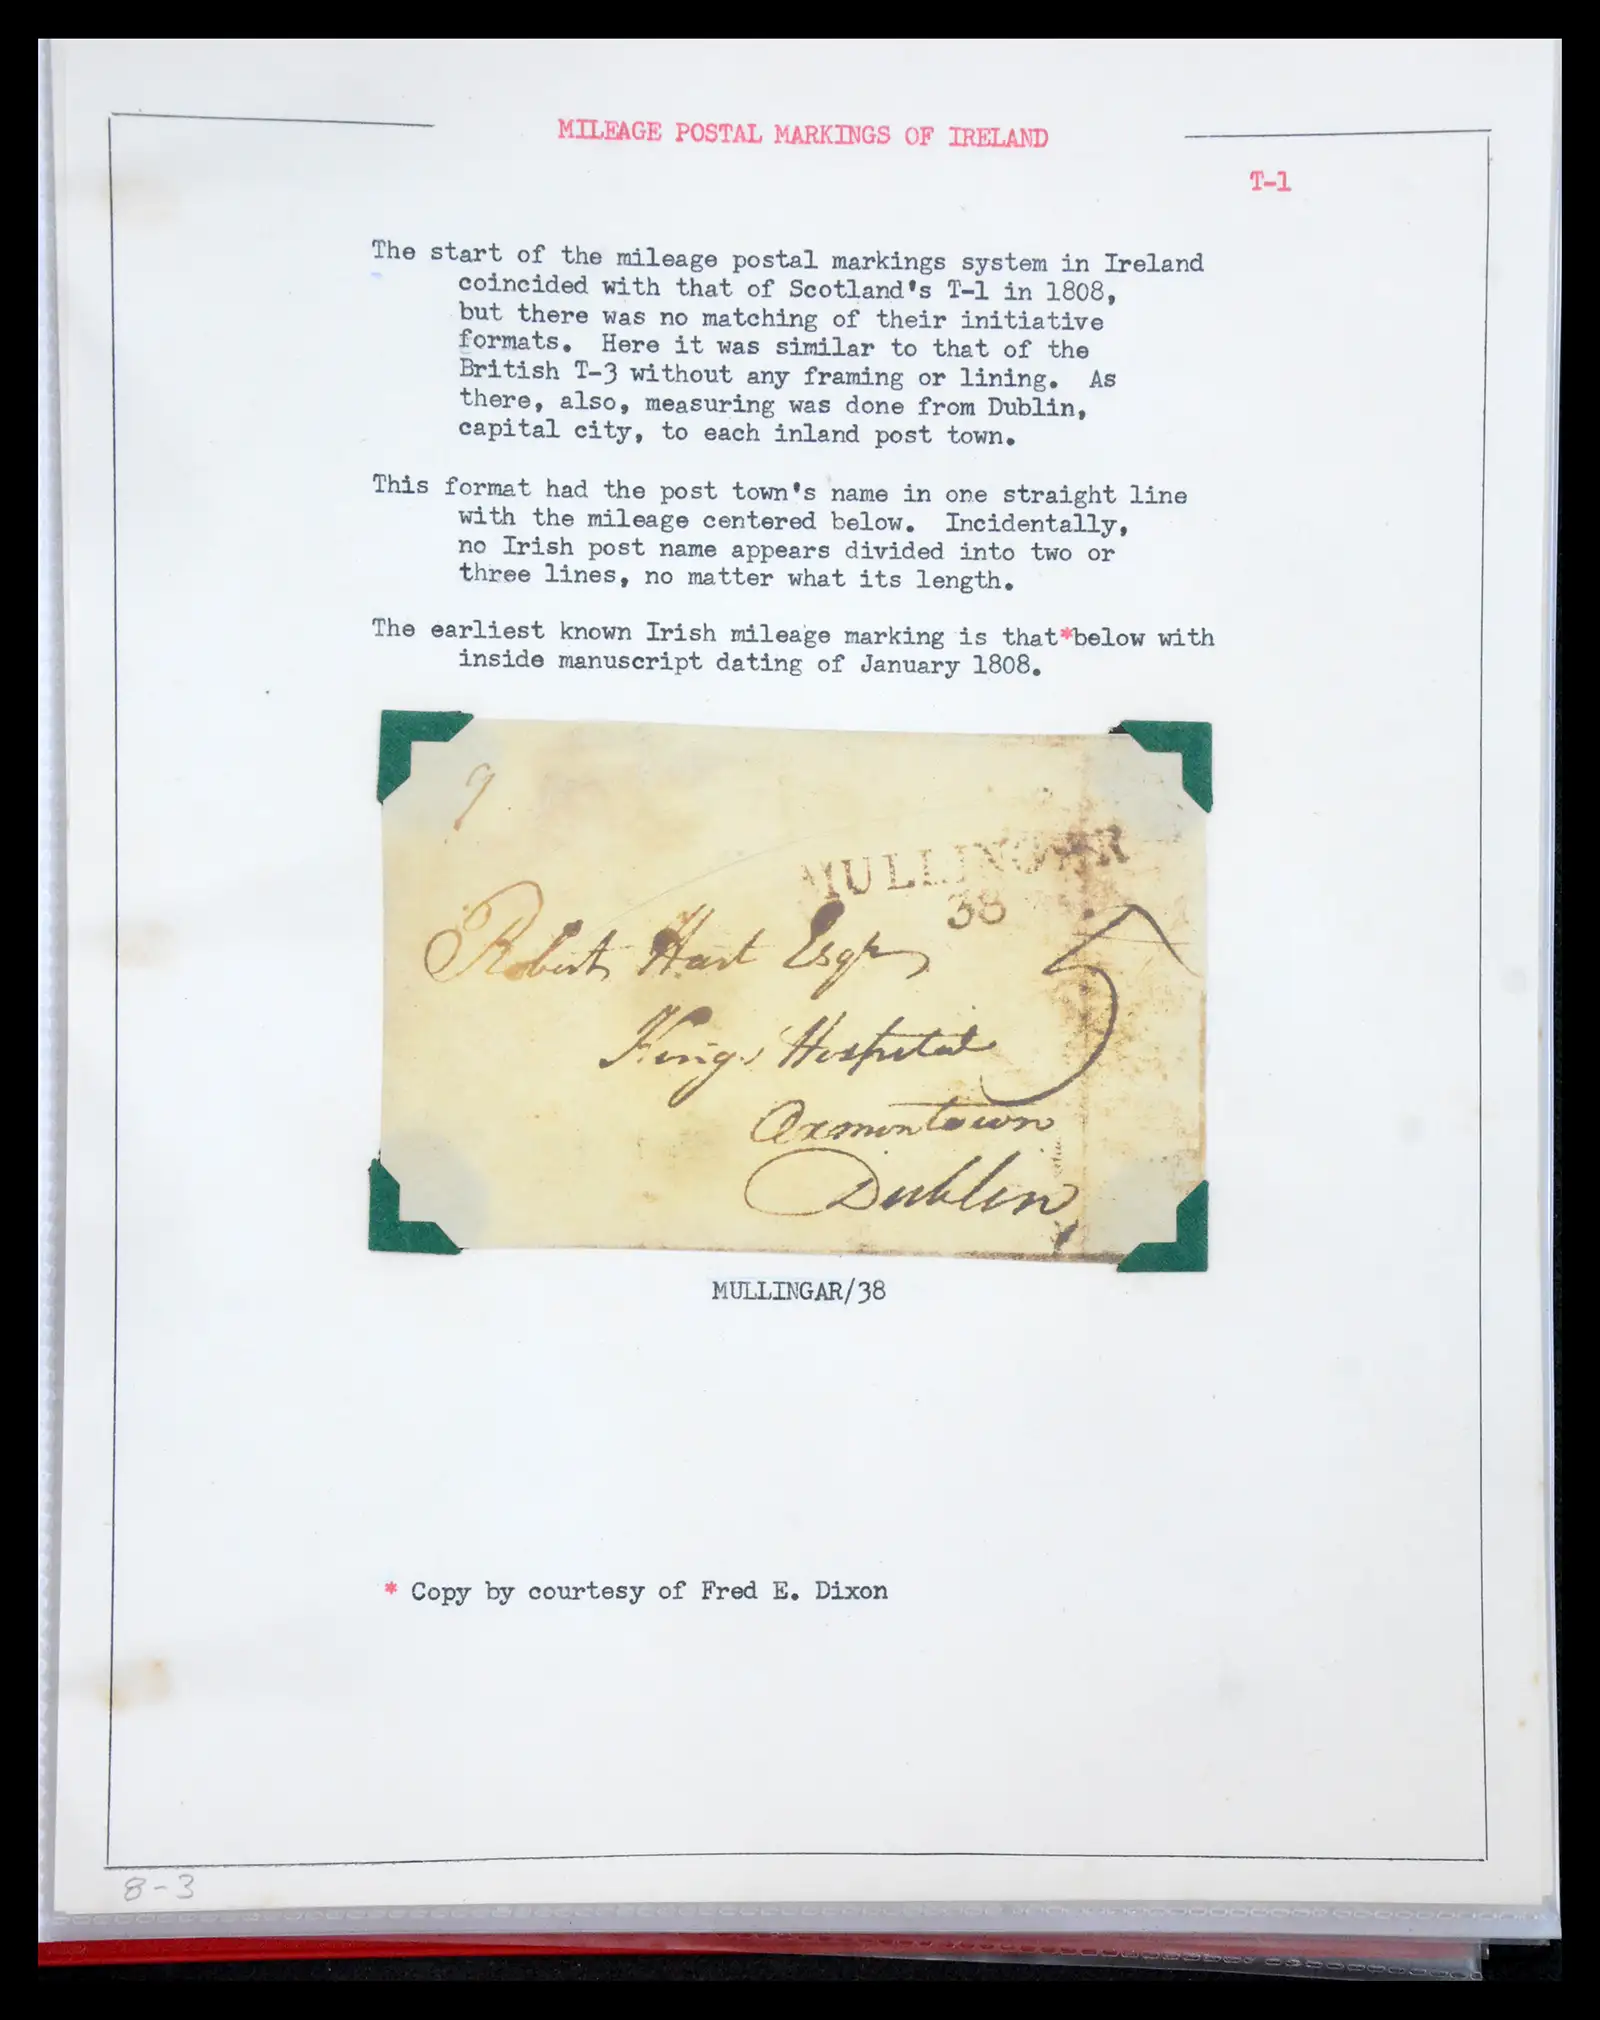 MILEAGE POSTAL MARKINGS OF IRELAND
T-1
The start of the mileage postal markings system in Ireland
coincided with that of Scotland's T-1 in 1808,
but there was no matching of their initiative
formats. Here it was similar to that of the
British T-3 without any framing or lining. As
there, also, measuring was done from Dublin,
capital city, to each inland post town.
This format had the post town's name in one straight line
with the mileage centered below. Incidentally,
no Irish post name appears divided into two or
three lines, no matter what its length.
The earliest known Irish mileage marking is that*below with
inside manuscript dating of January 1808.
9
MULLINGAR
38
5
Robert Hart Esqr
Kings Hospital
Oxmontown
Dublin
MULLINGAR/38
* Copy by courtesy of Fred E. Dixon
8-3